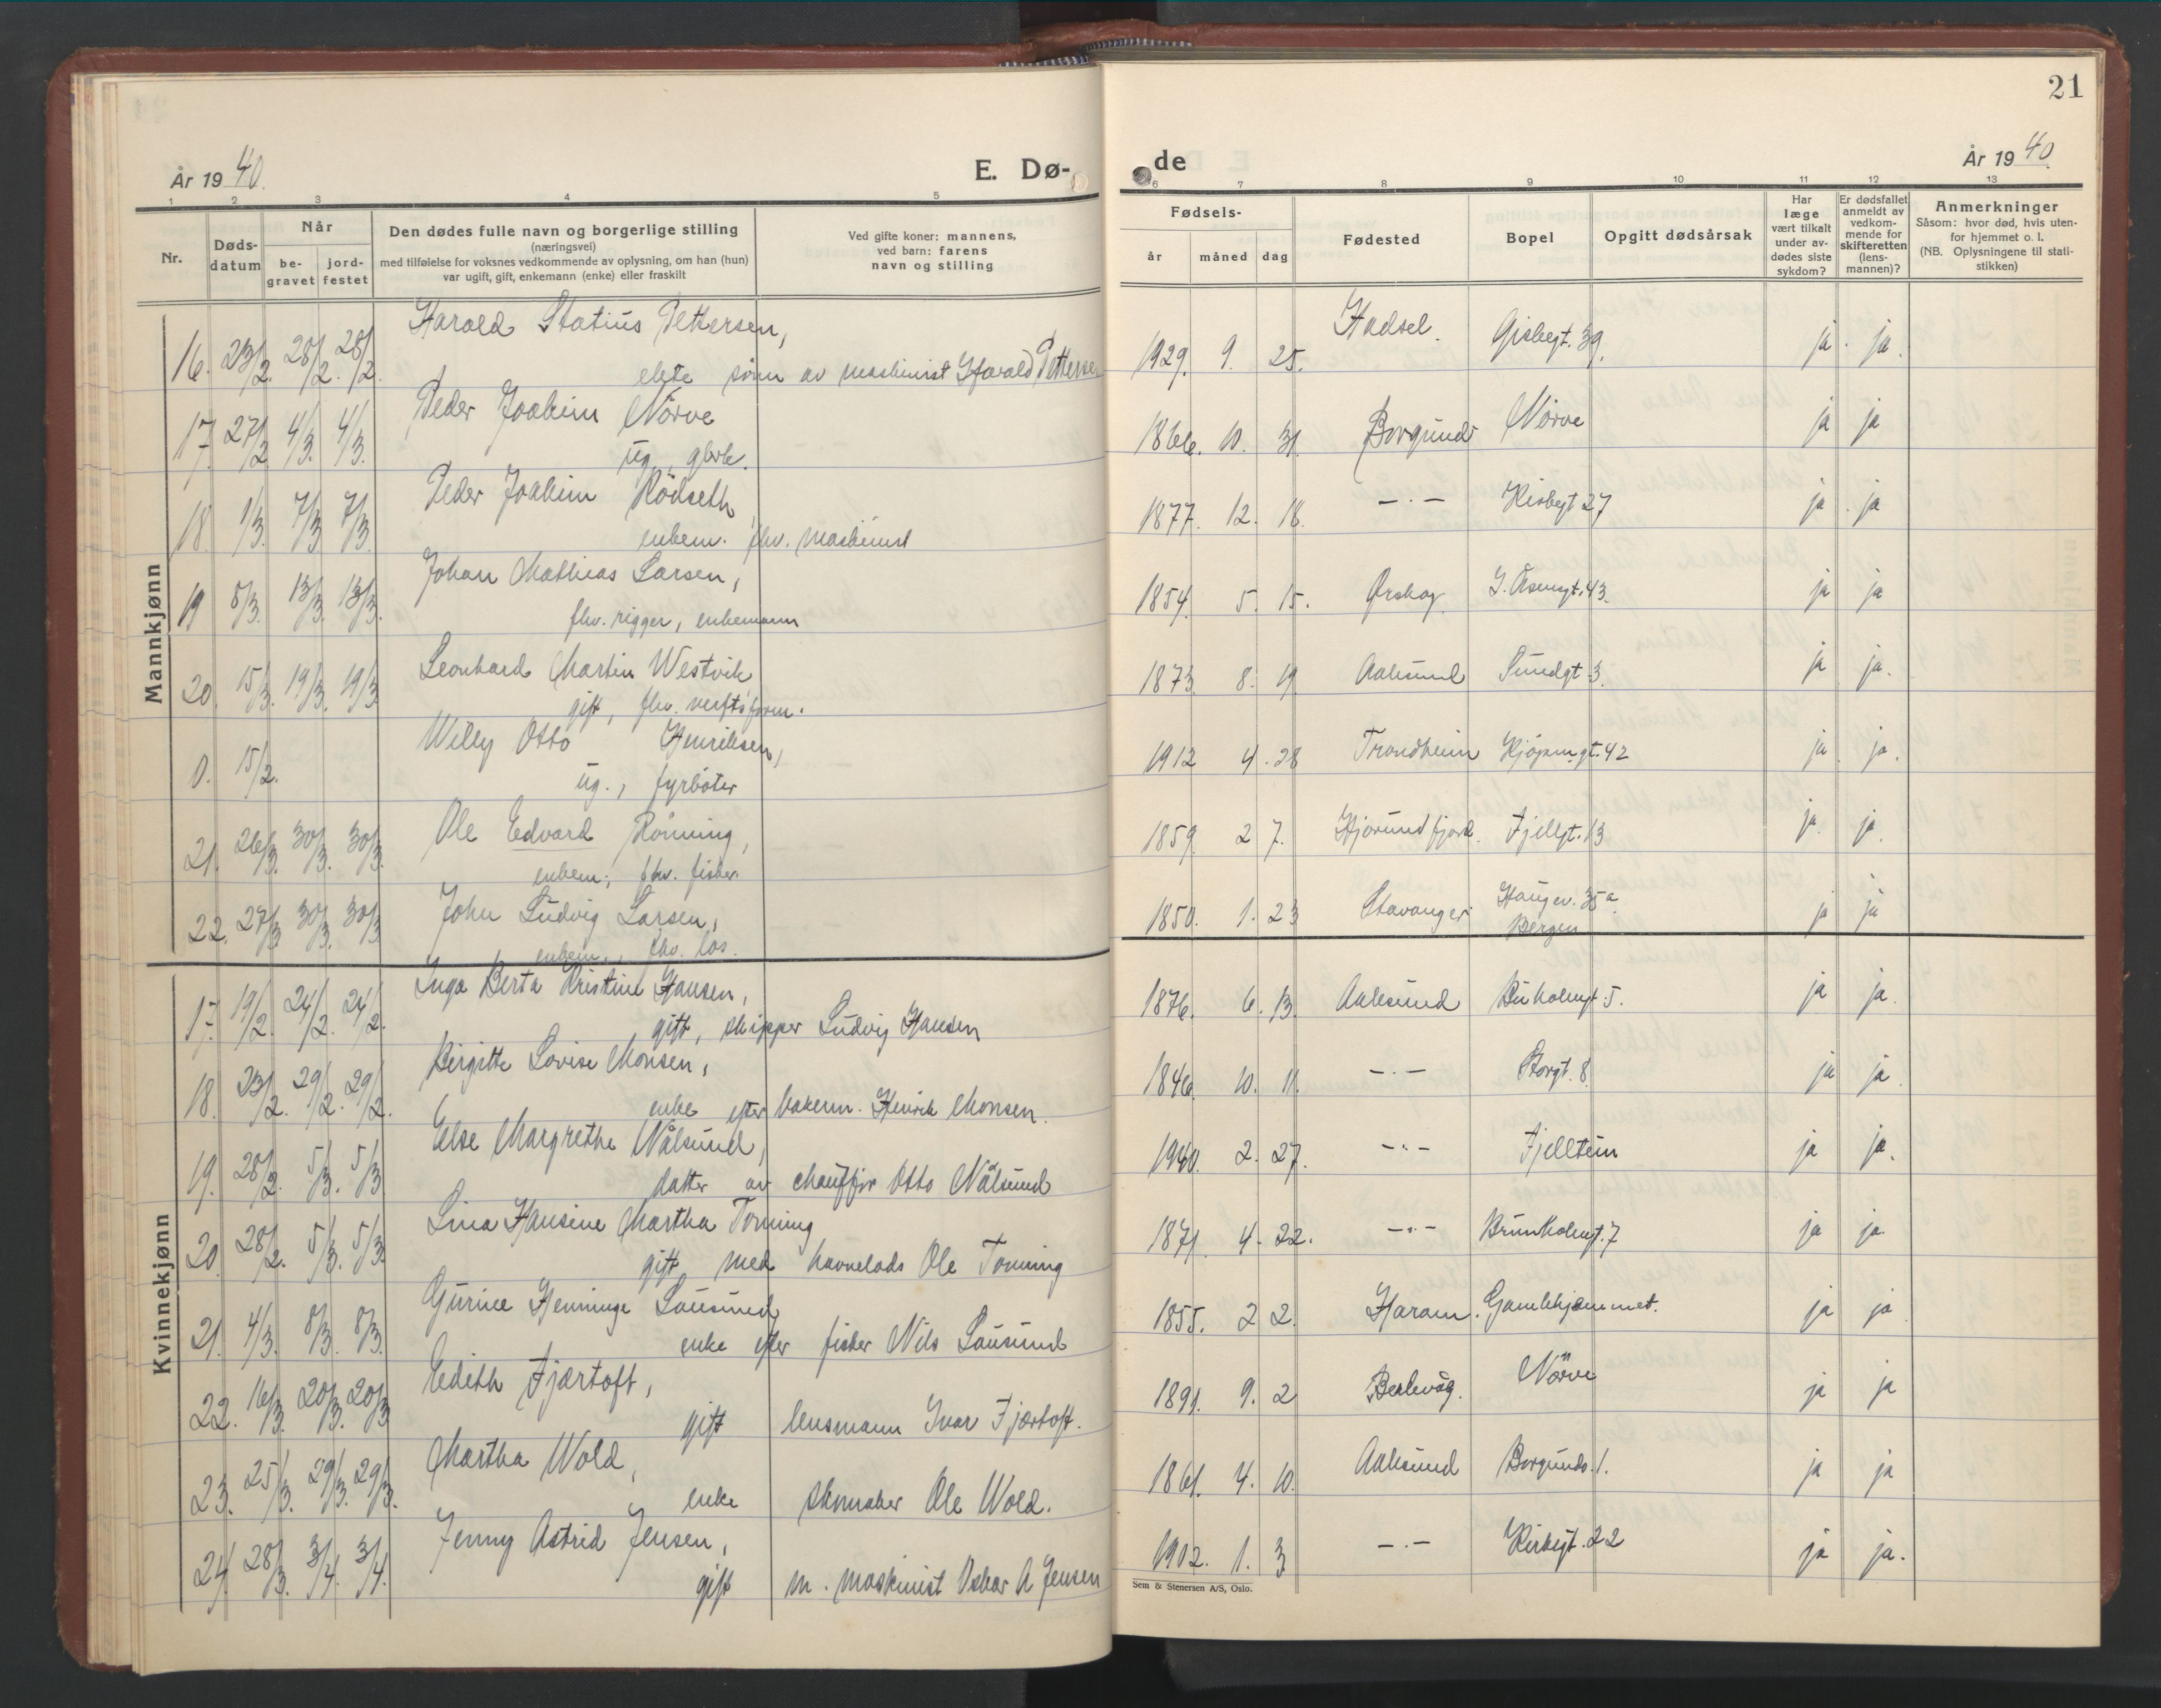 21
År 1940. E. Dø- de År 1940.
1 2 3 4 5 6 7 8 9 10 11 12 13
Nr.
Døds-
datum
Når
be-
gravet
jord-
festet
Den dødes fulle navn og borgerlige stilling
(næringsvei)
med tilføielse for voksnes vedkommende av oplysning, om han (hun)
var ugift, gift, enkemann (enke) eller fraskilt
Ved gifte koner: mannens,
ved barn: farens
navn og stilling
Fødsels-
år måned dag
Fødested
Bopel
Opgitt dødsårsak
Har
læge
vært tilkalt
under av-
dødes siste
sykdom?
Er dødsfallet
anmeldt av
vedkom-
mende for
skifteretten
(lens-
mannen)?
Anmerkninger
Såsom: hvor død, hvis uten-
for hjemmet o. l.
(NB. Oplysningene til stati-
stikken)
Mannkjønn
Harald Statius Pettersen,
16. 23/2. 28/2. 28/2. ekte sønn av maskinist Harald Pettersen 1929. 9. 25. Hadsel. 39. ja. ja.
Peder Joakim Nörve
17. 27/2. 4/3. 4/3. ug., 1866. 10. 31. Borgund Nörve ja ja
Peder Joakim Rödseth
18. 1/3. 7/3. 7/3. enkem. fhv. maskinist 1877. 12. 18. —.— Kirkegt 27 ja. ja
Johan Mathias Larsen,
19 8/3. 13/3. 13/3. fhv. rigger, enkemann 1854. 5. 15. Ørskog I. Åsensgt. 43. ja ja
Leonhard Martin Westvik
20. 15/3. 19/3. 19/3. gift, fhv. verftsform. 1873. 8. 19 Aalesund Sundgt 3. ja ja.
Willy Otto Henriksen,
0. 15/2. ug., fyrböter 1912 4. 28 Trondheim Kjöpm.gt. 42 ja. ja.
Ole Edvard Rönning,
21. 26/3. 30/3. 30/3. enkem., fhv. fisker. 1859. 2 7. Hjørundfjord. Fjellgt. 13 ja. ja.
John Ludvig Larsen,
22. 27/3 30/3. 30/3 enkem., fhv. los. 1850. 1. 23 Stavanger Haugev. 35a
Bergen ja ja
Kvinnekjønn
Inga Berta Kristine Hansen,
17. 19/2. 24/2. 24/2. gift, skipper Ludvig Hansen 1876. 6. 13. Aalesund 5. ja ja.
Birgitte Lovise Monsen,
18. 23/2. 29/2. 29/2. enke efter bakerm. Henrik Monsen. 1846. 10. 11. —.— Storgt. 8. ja ja.
Else Margrethe Nålsund,
19. 28/2. 5/3. 5/3 datter av chauffør Otto Nålsund 1940. 2. 27. —.— Fjelltun ja ja.
Lina Hansine Martha Tonning
20. 28/2. 5/3. 5/3. gift med havnelods Ole Tonning 1871. 4. 22. —.— Brunholmgt. 7 ja ja.
Gurine Henninge Lausund,
21. 4/3. 8/3. 8/3. enke efter fisker Nils Lausund 1855. 2 2. Haram. Gamlehjemmet. ja ja
Edith Fjærtoft,
22. 16/3. 20/3. 20/3 gift lensmann Ivar Fjørtoft. 1891. 9. 2 Berlevåg. Nörve ja ja
Martha Wold,
23. 25/3. 29/3. 29/3. enke skomaker Ole Wold. 1861. 4. 10. Aalesund Borgundv. 1. ja ja
Jenny Astrid Jensen,
24. 28/3. 3/4. 3/4. gift m. maskinist Oskar A Jensen 1902. 1. 3 —.— Kirkegt. 22 ja ja.
Sem & Stenersen A/S, Oslo.